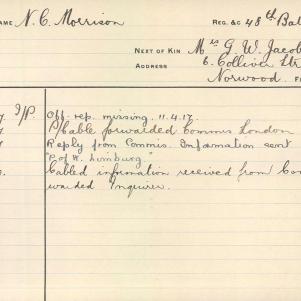 NAME N. C. Morrison REG. &c 48th Bat
NEXT OF KIN Mrs G. W. Jacob
ADDRESS 6. Colliver Str
Norwood
7. I/P. Off. rep. missing. 11.4.17.
7 Cable forwarded Commis London
7 Reply from Commis. Information sent
"P. of W. Limburg"
Cabled information received from Com
warded Inquirer.